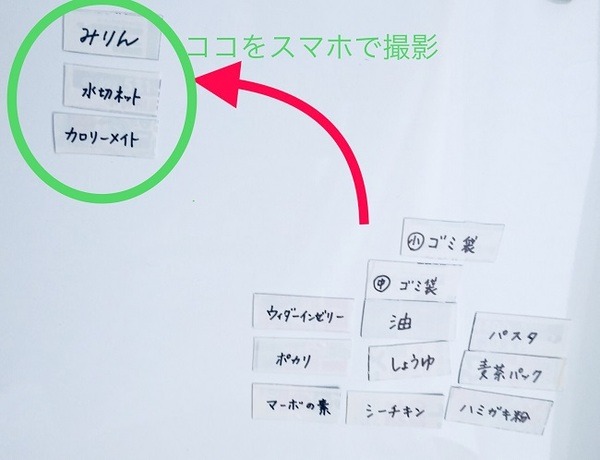 みりん
ココをスマホで撮影
水切ネット
カロリーメイト
小 ゴミ袋
中 ゴミ袋
ウィダーインゼリー
油
パスタ
ポカリ
しょうゆ
麦茶パック
マーボの素
シーチキン
ハミガキ粉